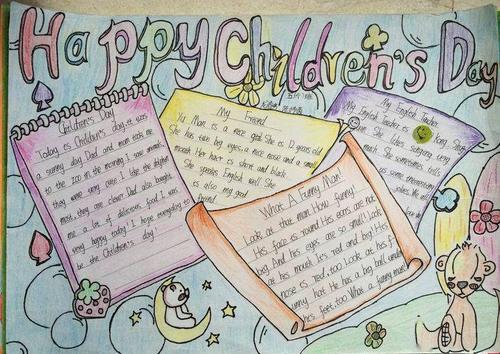 Happy Children's Day
Children's Day
Today is Children's day, it was
a sunny day. Dad and mom took me
to the zoo in the morning. I saw animals,
they were very cute. I like the
most, they are clever. Dad also bought
me a lot of delicious food. I was
very happy today! I hope everyday to
be the Children's day!
My Friend
Yu Man is a nice girl. She is 12 years old
She has two big eyes, a nice nose and a small
mouth. Her hair is short and black.
She speaks English well. She
is also my good
friend.
My English Teacher
My English Teacher is
She likes singing very
much. She sometimes tells
us some interesting
What A Funny Man!
Look at that man. How funny!
His face is round. His ears are not
big. And his eyes are so small! Look
at his mouth. It's red and big! His
nose is red, too. Look at his
funny hat. He has a big ball under
his feet, too. What a funny man!